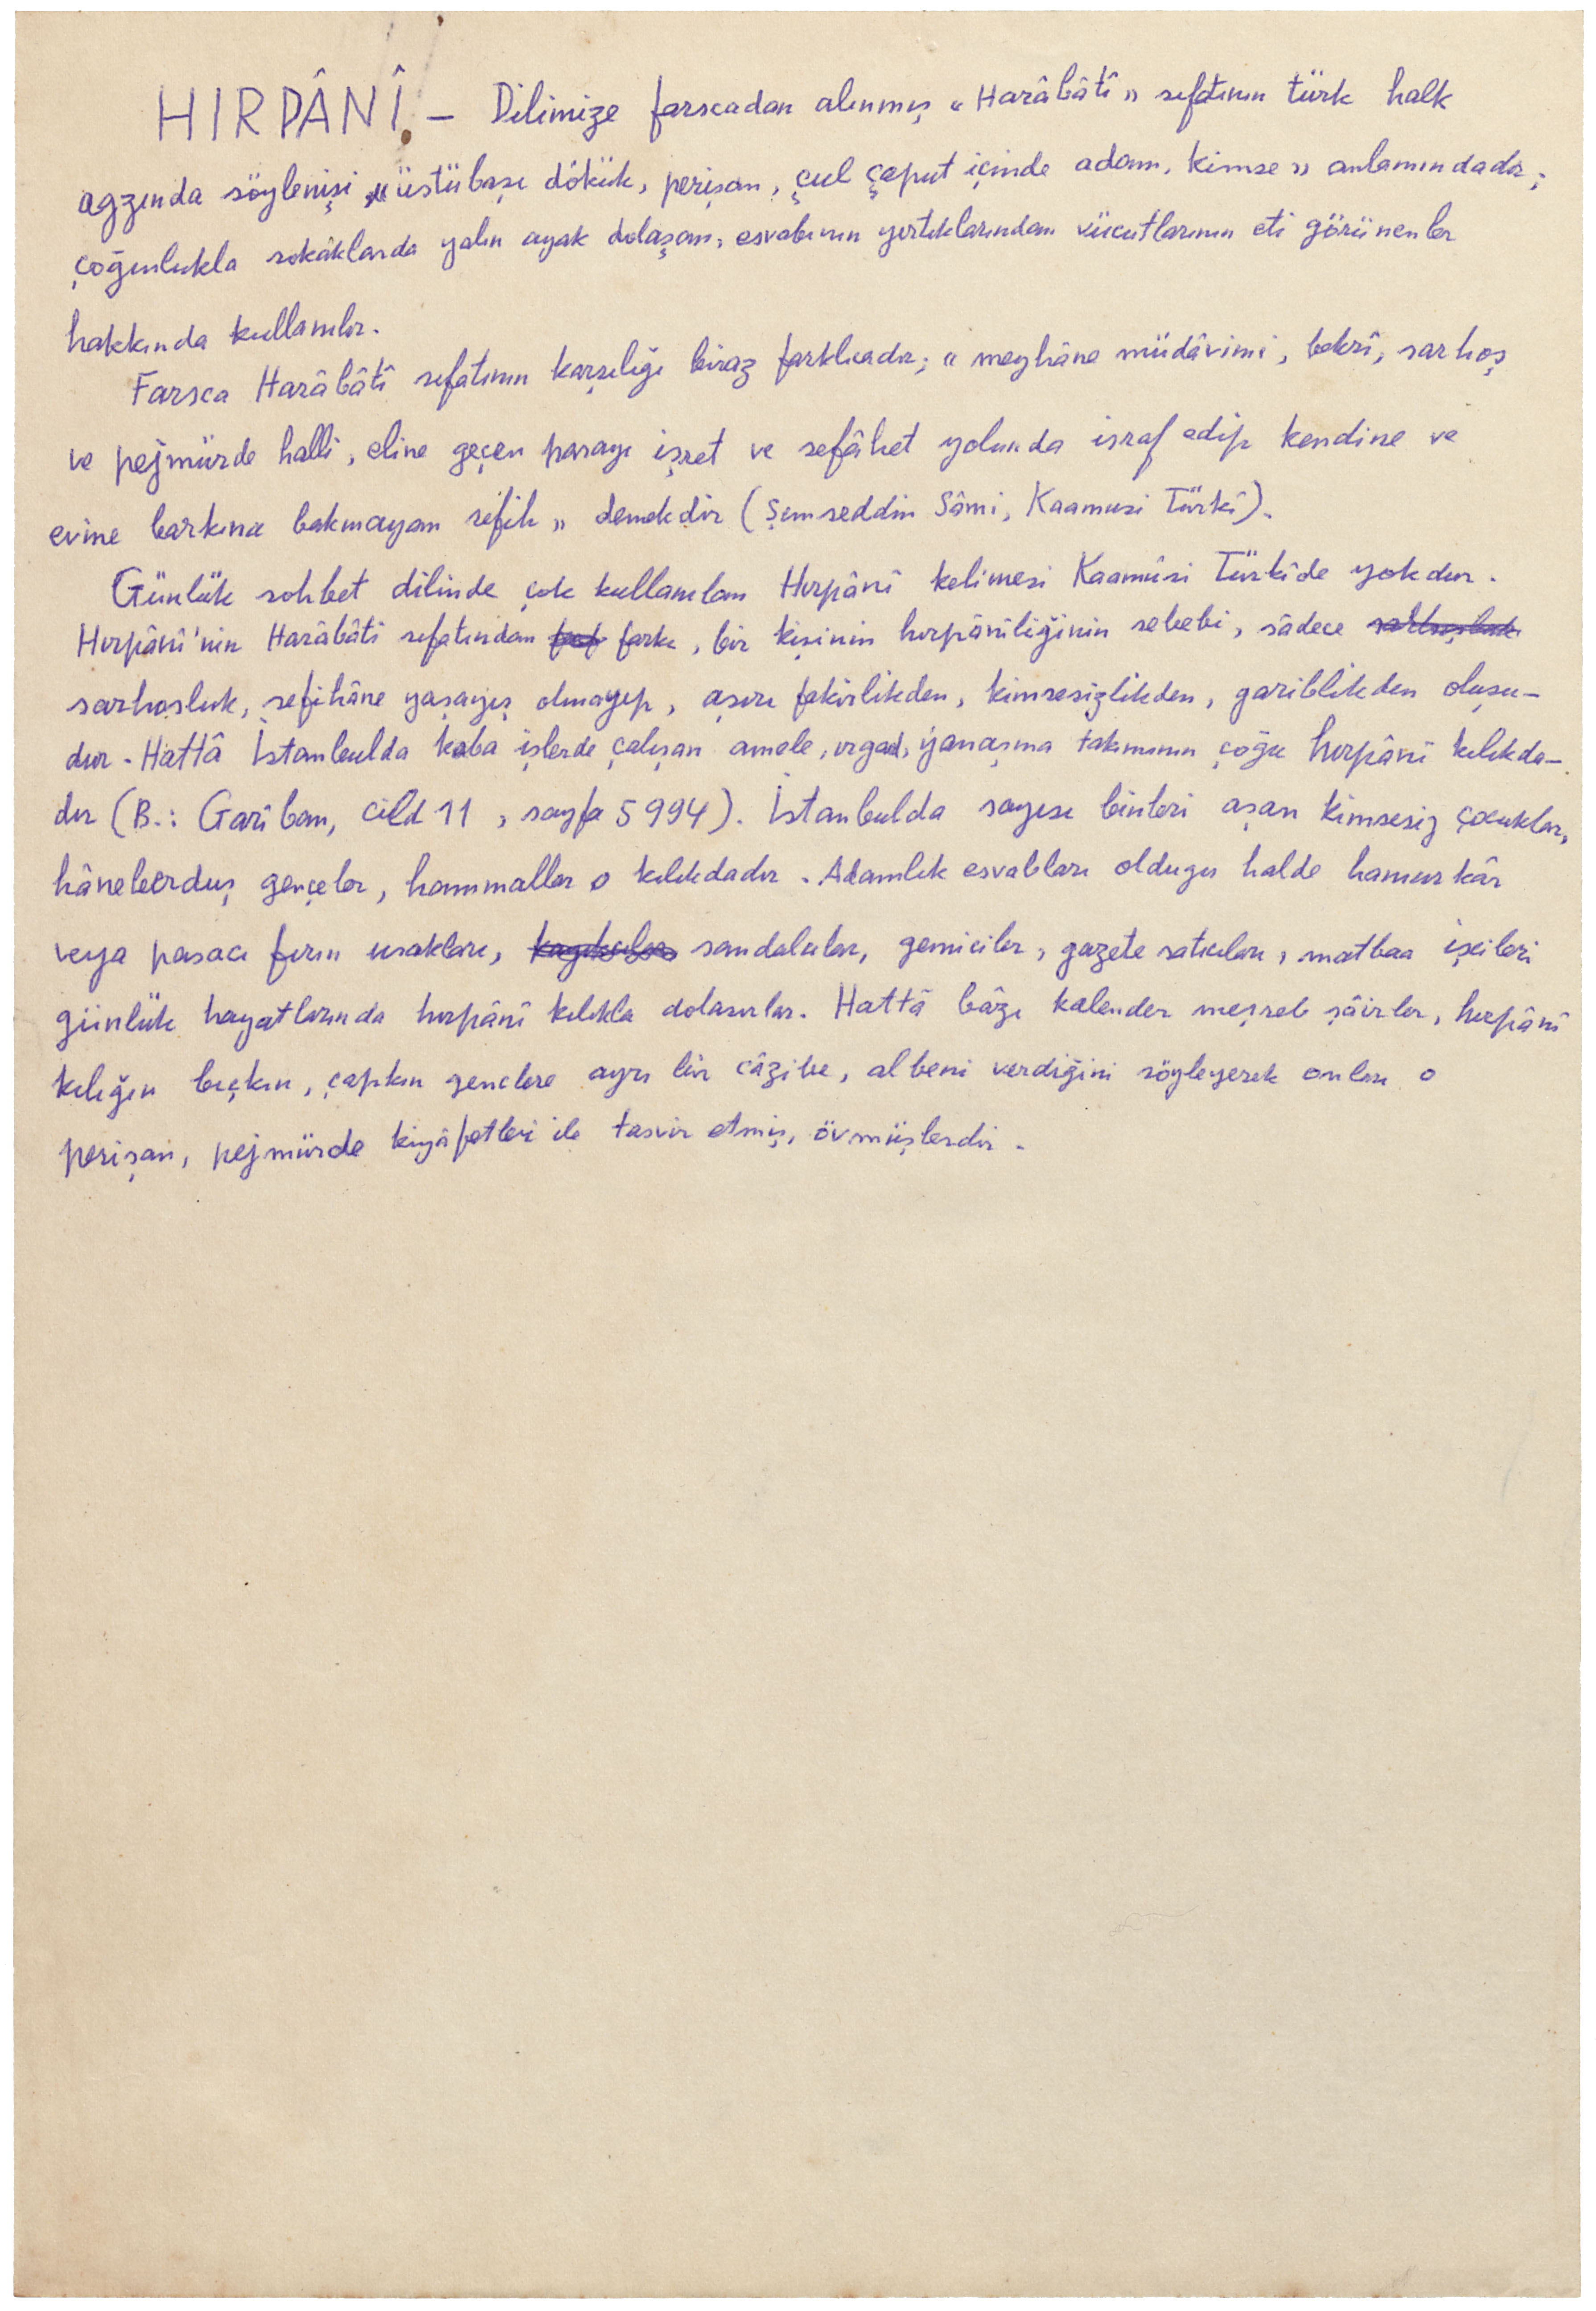 HIRPÂNÎ. — Dilimize farscadan alınmış « Harâbâtî » sıfatının türk halk
agzında söylenişi, « üstübaşı dökük, perişan, çul çaput içinde adam, kimse » anlamındadır;
çoğunlukla sokaklarda yalın ayak dolaşan, esvabının yırtıklarından vücutlarının eti görünenler
hakkında kullanılır.
Farsca Harâbâtî sıfatının karşılığı biraz farklıcadır; « meyhâne müdâvimi, bekrî, sarhoş
ve pejmürde halli, eline geçen parayı işret ve sefâhet yolunda israf edip kendine ve
evine barkına bakmayan sefih » demekdir (Şemseddin Sâmi, Kaamusi Türkî).
Günlük sohbet dilinde çok kullanılan Hırpânî kelimesi Kaamûsi Türkîde yokdur.
Hırpânî'nin Harâbâti sıfatından farkı, bir kişinin hırpânîliğinin sebebi, sâdece sarhoşluk
sarhoşluk, sefihâne yaşayış olmayıp, aşırı fakirlikden, kimsesizlikden, gariblikden oluşu-
dur. Hattâ İstanbulda kaba işlerde çalışan amele, ırgad, yanaşma takımının çoğu hırpânî kılıkda-
dır (B.: Garîban, cild 11, sayfa 5994). İstanbulda sayısı binleri aşan kimsesiz çocuklar,
hâneberduş gençler, hammallar o kılıkdadır. Adamlık esvabları oldugu halde hamurkâr
veya pasacı fırın uşakları, kayıkcılar sandalcılar, gemiciler, gazete satıcıları, matbaa işcileri
günlük hayatlarında hırpânî kılıkla dolaşırlar. Hattâ bâzı kalender meşreb şâirler, hırpânî
kılığın bıçkın, çapkın genclere ayrı bir câzibe, albeni verdiğini söyleyerek onları o
perişan, pejmürde kıyâfetleri ile tasvir etmiş, övmüşlerdir.